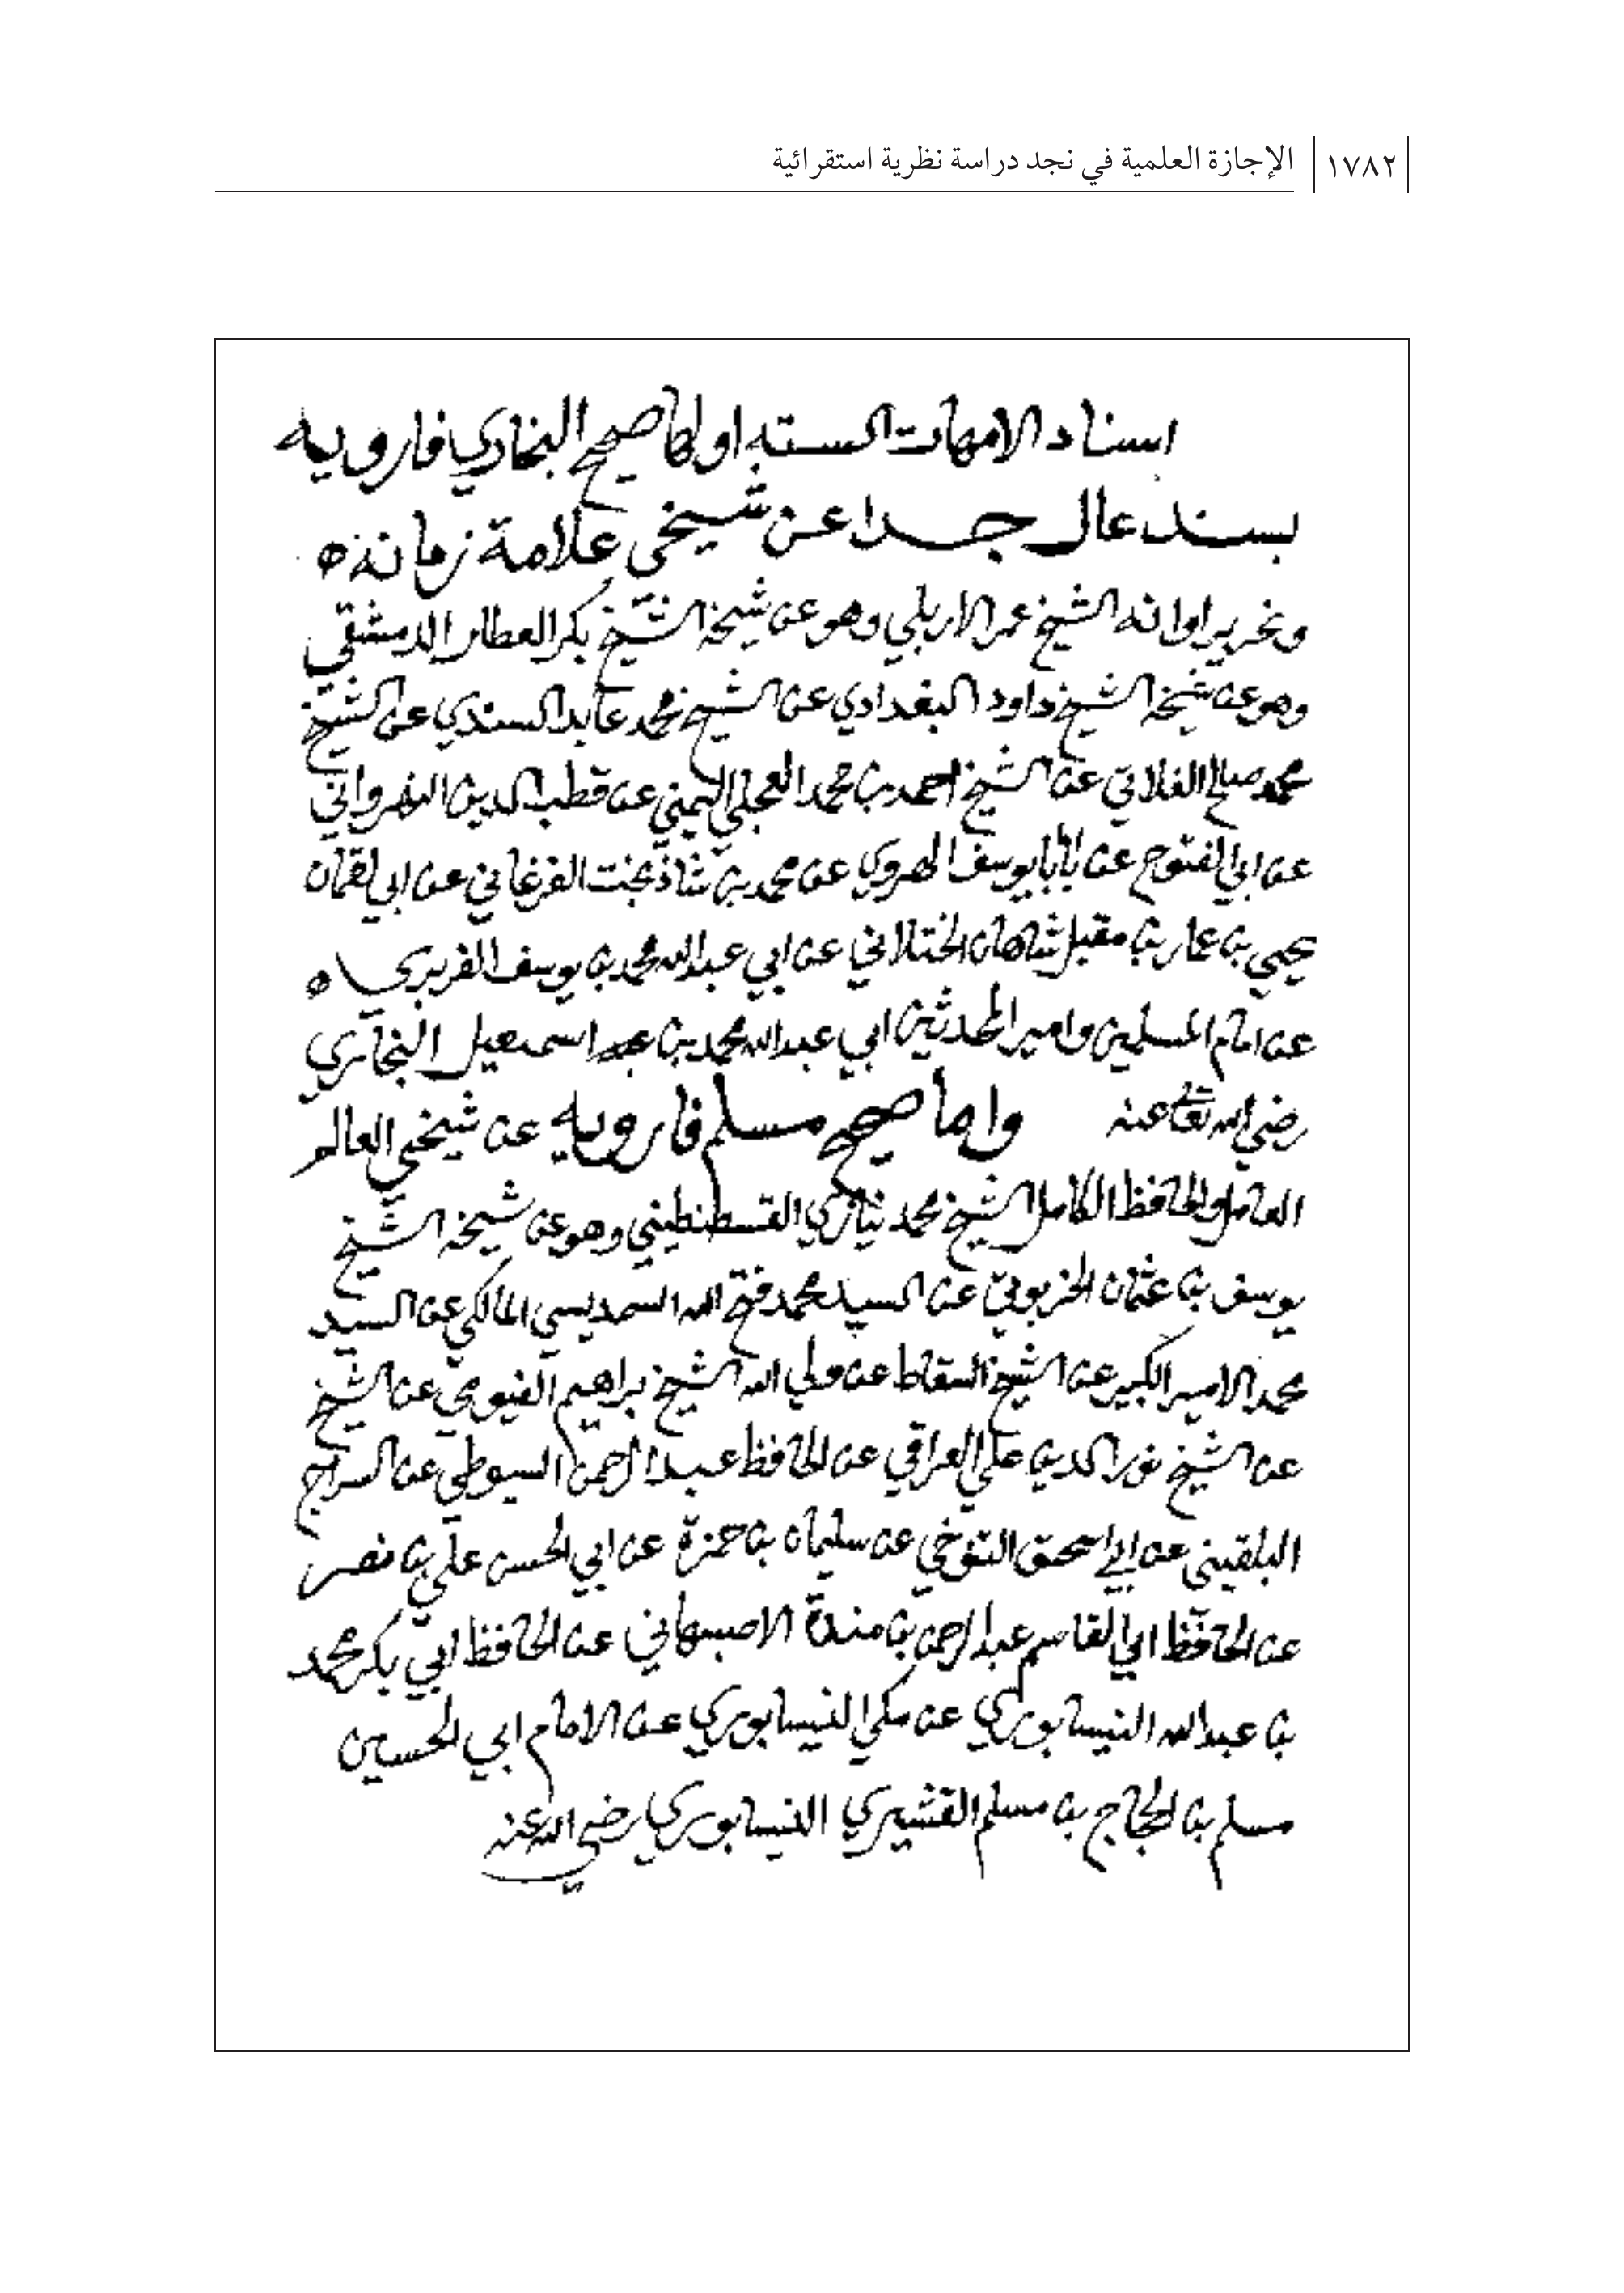 ١٧٨٢ الإجازة العلمية في نجد دراسة نظرية استقرائية
اسناد الامهات الستة اولها صحيح البخاري فارويه
بسند عال جدا عن شيخي علامة زمانه
ونحرير اوانه الشيخ عمر الاربلي وهو عن شيخه الشيخ بكر العطار الدمشقي
وهو عن شيخه الشيخ داود البغدادي عن الشيخ محمد عابد السندي عن الشيخ
محمد صالح الفلاني عن الشيخ احمد بن محمد العجلي اليمني عن قطب الدين النهرواني
عن ابي الفتوح عن بابا يوسف الهروي عن محمد بن شاذبخت الفرغاني عن ابي لقمان
يحيى بن عمار بن مقبل شاهان الختلاني عن ابي عبد الله محمد بن يوسف الفربري
عن امام المسلمين وامير المحدثين ابي عبد الله محمد بن اسمعيل البخاري
رضي الله تعالى عنه واما صحيح مسلم فارويه عن شيخي العالم
العامل والحافظ الكامل الشيخ محمد نيازي القسطنطيني وهو عن شيخه الشيخ
يوسف بن عثمان الخربوتي عن السيد محمد فتح الله السمديسي المالكي عن السيد
محمد الامير الكبير عن الشيخ السقاط عن ولي الله الشيخ براهيم الفيومي عن الشيخ
عن الشيخ نور الدين علي العراقي عن الحافظ عبد الرحمن السيوطي عن السراج
البلقيني عن ابي اسحق التنوخي عن سليمان بن حمزة عن ابي الحسن علي بن نصر
عن الحافظ ابي القاسم عبد الرحمن بن مندة الاصبهاني عن الحافظ ابي بكر محمد
بن عبد الله النيسابوري عن مكي النيسابوري عن الامام ابي الحسين
مسلم بن الحجاج بن مسلم القشيري النيسابوري رضي الله عنه